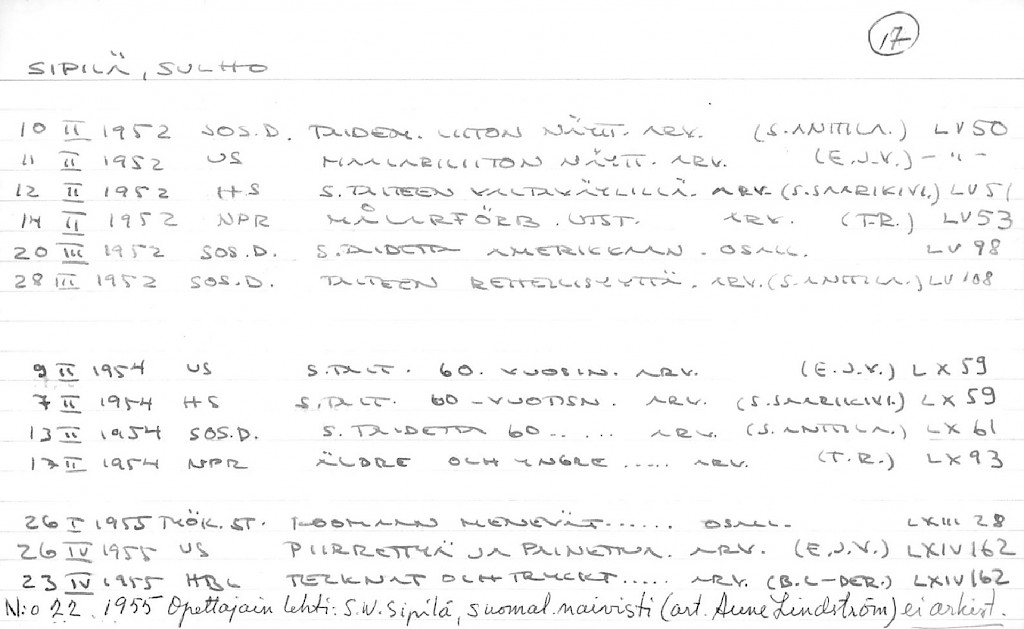 17
SIPILÄ, SULHO
10 II 1952 SOS.D. TAIDEM. LIITON NÄYTT. ARV. (S. ANTTILA.) LV 50
11 II 1952 US MAALARILIITON NÄYTT. ARV. (E.J.V.) - " -
12 II 1952 HS S.TAITEEN VALTAVÄYLILLÄ. ARV. (S.SAARIKIVI.) LV 51
14 II 1952 NPR MÅLARFÖRB. UTST. ARV. (T.R.) LV 53
20 III 1952 SOS.D. S.TAIDETTA AMERIKKAAN. OSALL. LV 98
28 III 1952 SOS.D. TAITEEN RETTELLISYYTTÄ. ARV. (S. ANTTILA.) LV 108
9 II 1954 US S.TAIT. 60. VUOSIN. ARV. (E.J.V.) LX 59
7 II 1954 HS S.TAIT. 60-VUOTISN. ARV. (S.SAARIKIVI.) LX 59
13 II 1954 SOS.D. S. TAIDETTA 60 .. ... ARV. (S. ANTTILA.) LX 61
17 II 1954 NPR ÄLDRE OCH YNGRE ..... ARV. (T.R.) LX 93
26 I 1955 TYÖK.ST. ROOMAAN MENEVÄT ...... OSALL. LXIII 28
26 IV 1955 US PIIRRETTYÄ JA PAINETTUA. ARV. (E.J.V.) LXIV 162
23 IV 1955 HBL TECKNAT OCH TRYCKT ..... ARV. (B. C-DER.) LXIV 162
N:o 22. 1955 Opettajain lehti: S.W. Sipilä, suomal. naivisti (art. Aune Lindström) ei arkist.